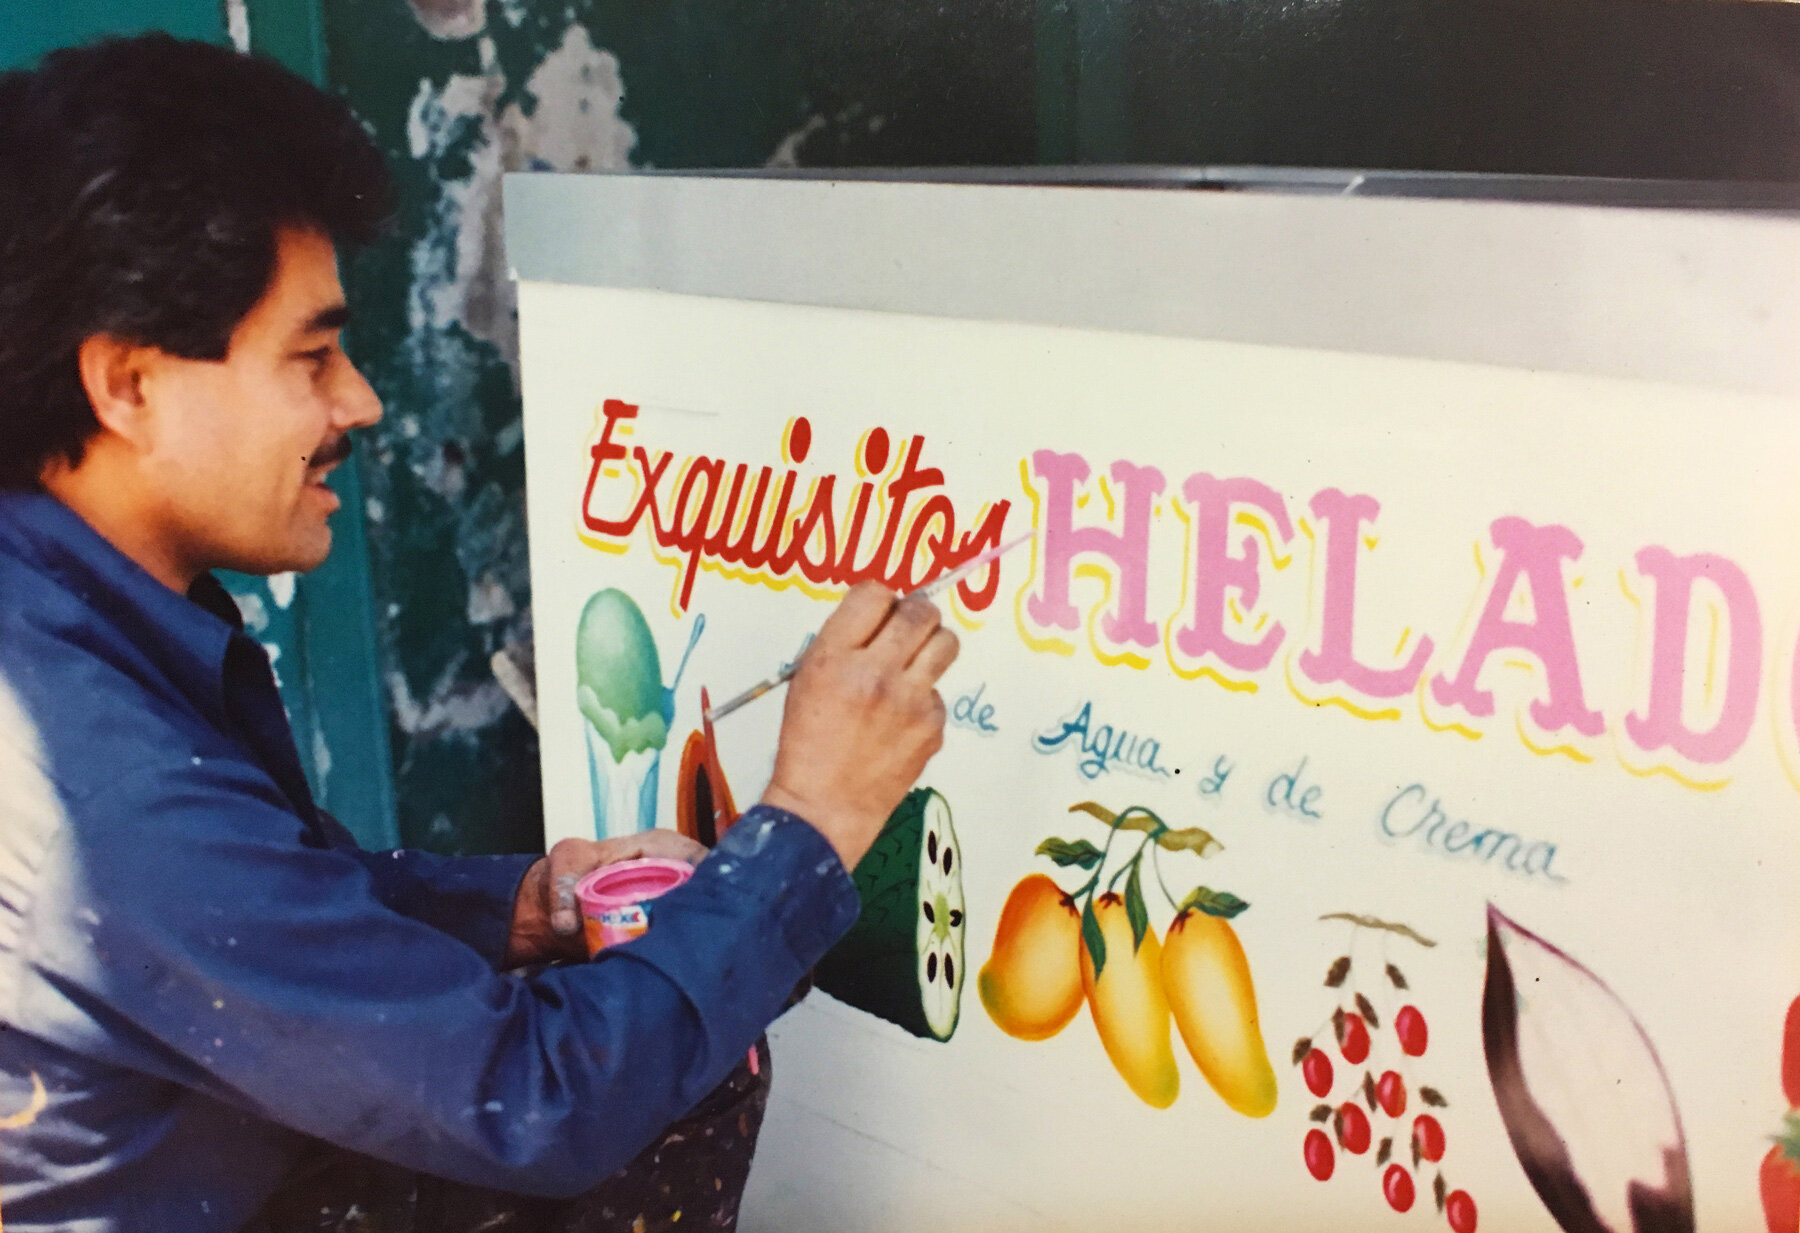 Exquisitos HELADO
de Agua y de Crema